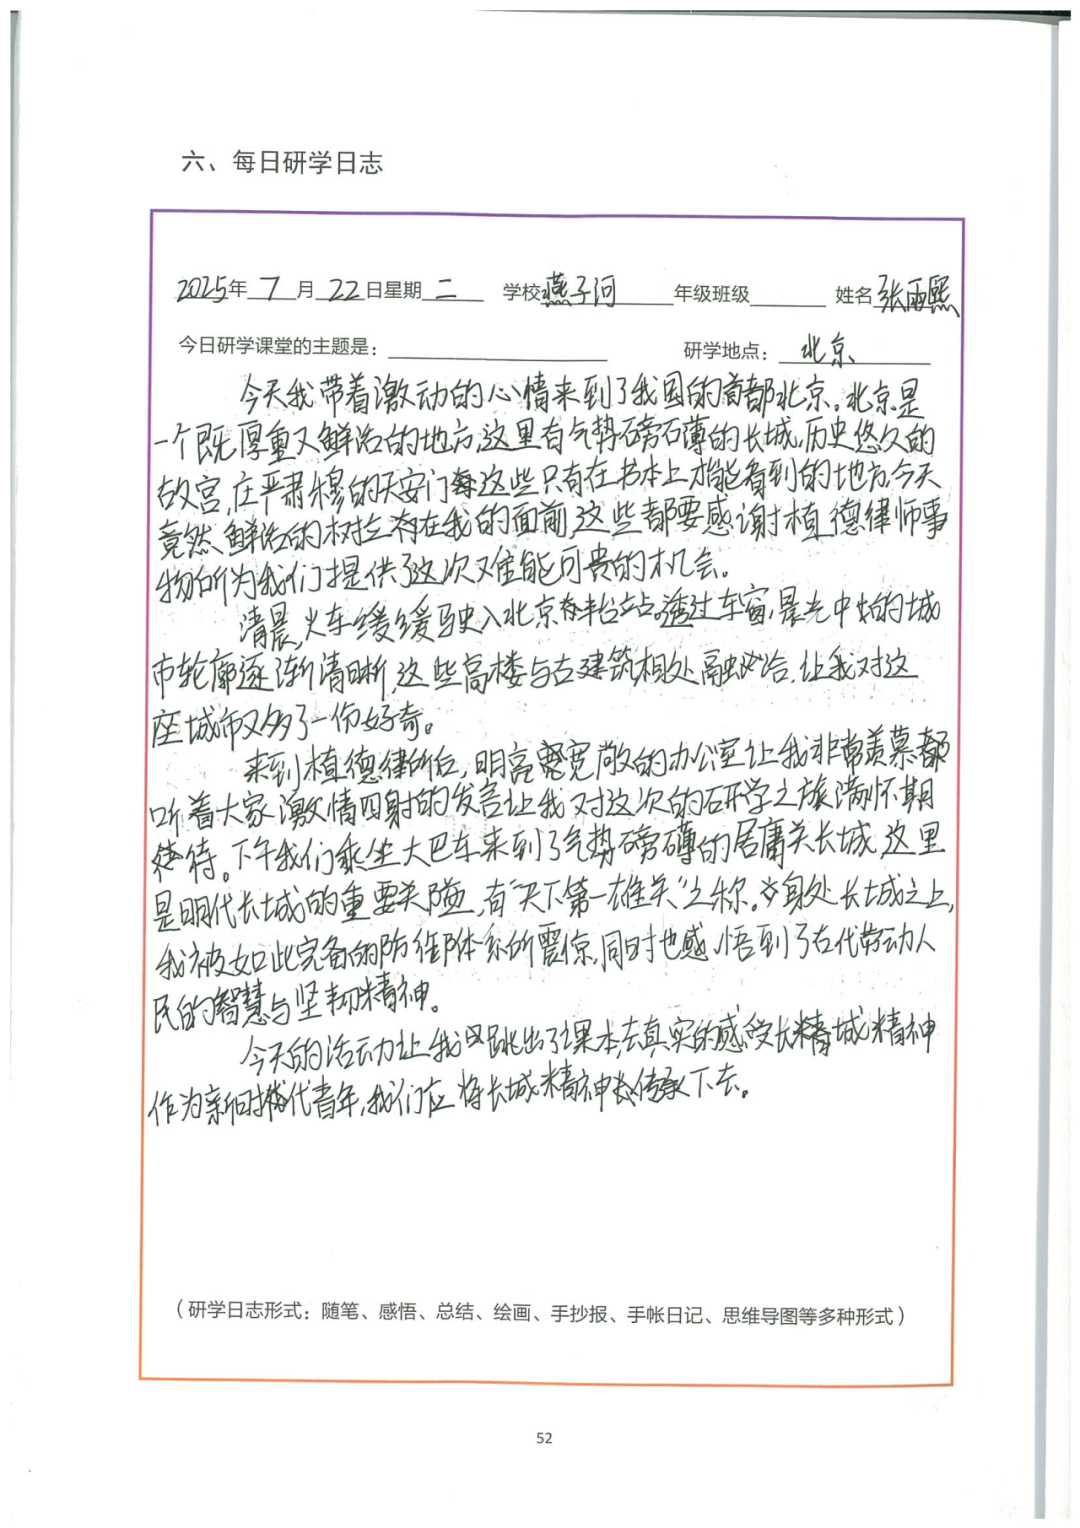 六、每日研学日志
2025年 7 月 22 日星期 二 学校 燕子河 年级班级 姓名 张雨熙
今日研学课堂的主题是： 研学地点： 北京
今天我带着激动的心情来到了我国的首都北京。北京是
一个既厚重又鲜活的地方,这里有气势磅礴的长城,历史悠久的
故宫,庄严肃穆的天安门,这些只有在书本上才能看到的地方,今天
竟然鲜活的树立在我的面前,这些都要感谢植德律师事
物所为我们提供了这次难能可贵的机会。
清晨,火车缓缓驶入北京丰台站。透过车窗,晨光中的城
市轮廓逐渐清晰,这些高楼与古建筑相处融洽,让我对这
座城市又多了一份好奇。
来到植德律所后,明亮宽敞的办公室让我非常羡慕
听着大家激情四射的发言让我对这次的研学之旅满怀期
待。下午我们乘坐大巴车来到了气势磅礴的居庸关长城,这里
是明代长城的重要关隘,有“天下第一雄关”之称。身处长城之上,
我被如此完备的防御体系所震惊,同时也感悟到了古代劳动人
民的智慧与坚韧精神。
今天的活动让我跳出了课本,去真实的感受长城精神
作为新时代青年,我们应将长城精神传承下去。
（研学日志形式：随笔、感悟、总结、绘画、手抄报、手帐日记、思维导图等多种形式）
52